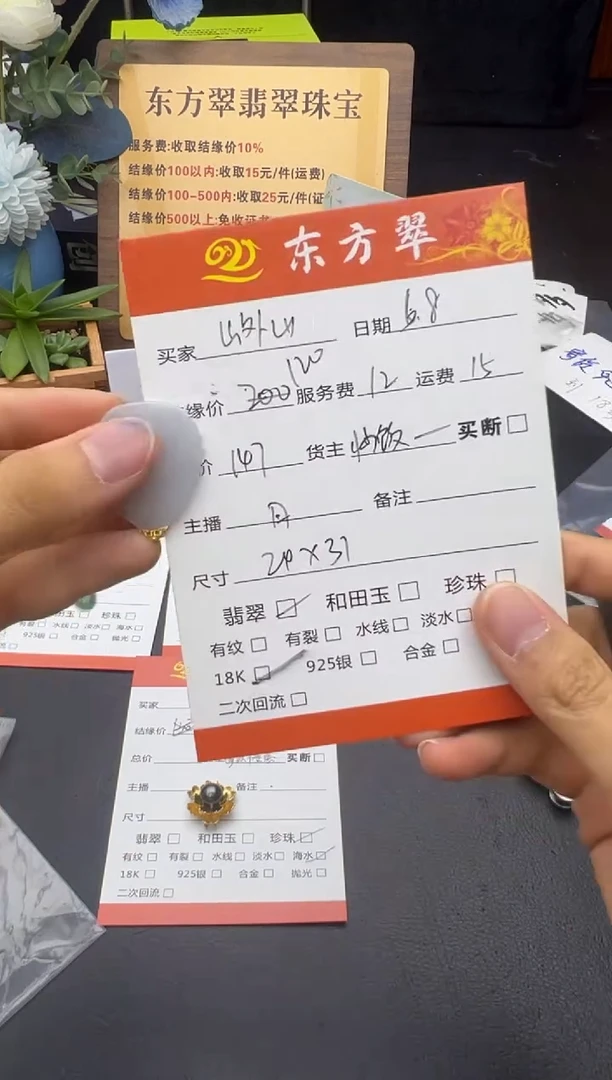 东方翠翡翠珠宝
服务费:收取结缘价10%
结缘价100以内:收取15元/件(运费)
结缘价100-500内:收取25元/件(证
结缘价500以上:免收证书
东方翠
买家 山外山 日期 6.8
120
缘价 200 服务费 12 运费 15
价 147 货主 一 买断
主播 丹 备注
尺寸 24×31
翡翠 和田玉 珍珠
有纹 有裂 水线 淡水
18K 925银 合金
二次回流
玉 珍珠
有裂 水线 淡水 海水
925银 合金 抛光
买家
结缘价
总价 买断
主播 备注
尺寸
翡翠 和田玉 珍珠
有纹 有裂 水线 淡水 海水
18K 925银 合金 抛光
二次回流